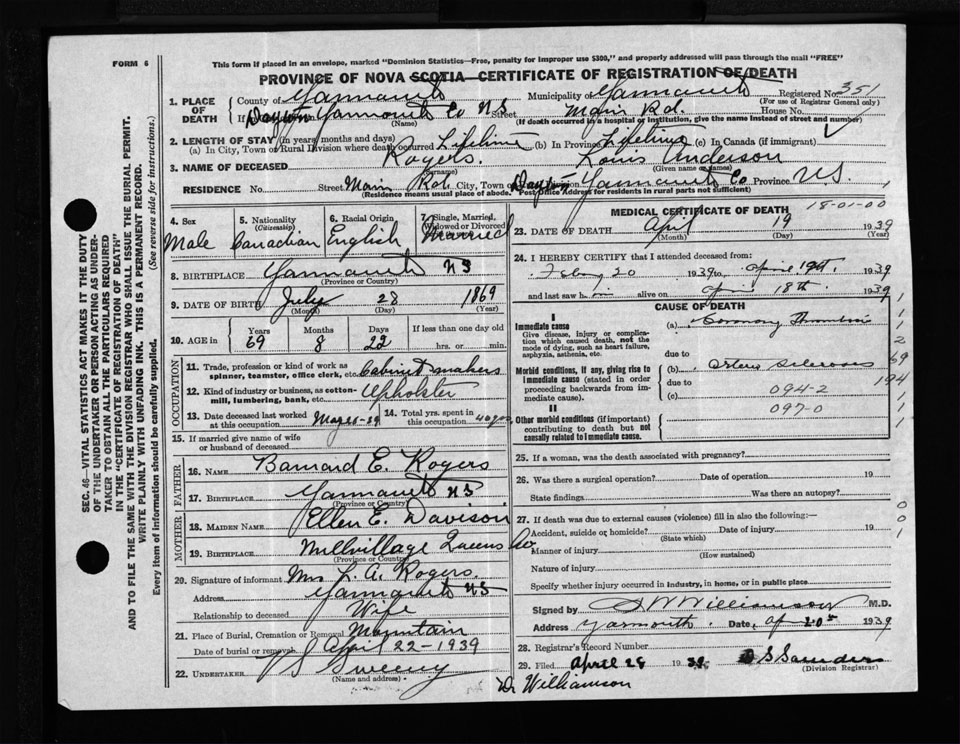 FORM 6
This form if placed in an envelope, marked "Dominion Statistics—Free, penalty for improper use $300," and properly addressed will pass through the mail "FREE"
PROVINCE OF NOVA SCOTIA—CERTIFICATE OF REGISTRATION OF DEATH
SEC. 46—VITAL STATISTICS ACT MAKES IT THE DUTY
OF THE UNDERTAKER OR PERSON ACTING AS UNDER-
TAKER TO OBTAIN ALL THE PARTICULARS REQUIRED
IN THE "CERTIFICATE OF REGISTRATION OF DEATH"
AND TO FILE THE SAME WITH THE DIVISION REGISTRAR WHO SHALL ISSUE THE BURIAL PERMIT.
WRITE PLAINLY WITH UNFADING INK. THIS IS A PERMANENT RECORD.
Every item of information should be carefully supplied. (See reverse side for instructions.)
1. PLACE OF DEATH County of Yarmouth Municipality of Yarmouth Registered No. 351
(For use of Registrar General only)
If Dayton Yarmouth Co NS Street Main Rd. House No.
(Name) (If death occurred in a hospital or institution, give the name instead of street and number)
2. LENGTH OF STAY (in years, months and days)
(a) In City, Town or Rural Division where death occurred Lifetime (b) In Province Lifetime (c) In Canada (if immigrant)
3. NAME OF DECEASED Rogers. Louis Anderson
(Surname) (Given name or names)
RESIDENCE No. Street Main Rd City, Town or Dayton Yarmouth Co Province N.S.
(Residence means usual place of abode. Post Office Address for residents in rural parts not sufficient)
4. Sex Male
5. Nationality (Citizenship) Canadian
6. Racial Origin English
Single, Married, Widowed or Divorced Married
8. BIRTHPLACE Yarmouth NS
(Province or Country)
9. DATE OF BIRTH July 28 1869
(Month) (Day) (Year)
10. AGE in Years 69 Months 8 Days 22 If less than one day old hrs. or min.
OCCUPATION
11. Trade, profession or kind of work as spinner, teamster, office clerk, etc. Cabinet makers
12. Kind of industry or business, as cotton-mill, lumbering, bank, etc. Upholster
13. Date deceased last worked at this occupation
14. Total yrs. spent in this occupation 40 yrs
15. If married give name of wife or husband of deceased
FATHER
16. NAME Barnard E. Rogers
17. BIRTHPLACE Yarmouth NS
(Province or Country)
MOTHER
18. MAIDEN NAME Ellen E. Davison
19. BIRTHPLACE Millvillage Queens Co
(Province or Country)
20. Signature of informant Mrs L. A. Rogers.
Address Yarmouth NS
Relationship to deceased Wife
21. Place of Burial, Cremation or Removal Mountain
Date of burial or removal April 22-1939
22. UNDERTAKER V S Sweeny
(Name and address)
MEDICAL CERTIFICATE OF DEATH 18-01-00
23. DATE OF DEATH April 19 1939
(Month) (Day) (Year)
24. I HEREBY CERTIFY that I attended deceased from:
20 1939 to April 19th. 1939
and last saw him alive on April 18th. 1939
CAUSE OF DEATH
I
Immediate cause
Give disease, injury or complication which caused death, not the mode of dying, such as heart failure, asphyxia, asthenia, etc.
(a) Coronary Thrombosis
due to
Morbid conditions, if any, giving rise to immediate cause (stated in order proceeding backwards from immediate cause).
(b) Arterio Sclerosis
due to 094-2
(c) 097-0
II
Other morbid conditions (if important) contributing to death but not causally related to immediate cause.
1
1
1
2
69
194
1
1
1
25. If a woman, was the death associated with pregnancy?
26. Was there a surgical operation? Date of operation 19
State findings Was there an autopsy?
27. If death was due to external causes (violence) fill in also the following:—
Accident, suicide or homicide? Date of injury 19
(State which)
Manner of injury
(How sustained)
Nature of injury
Specify whether injury occurred in industry, in home, or in public place
0
0
1
Signed by S W Williamson M.D.
Address Yarmouth. Date, Ap 20th 1939
28. Registrar's Record Number
29. Filed April 28 1939 S Saunders
(Division Registrar)
Dr Williamson